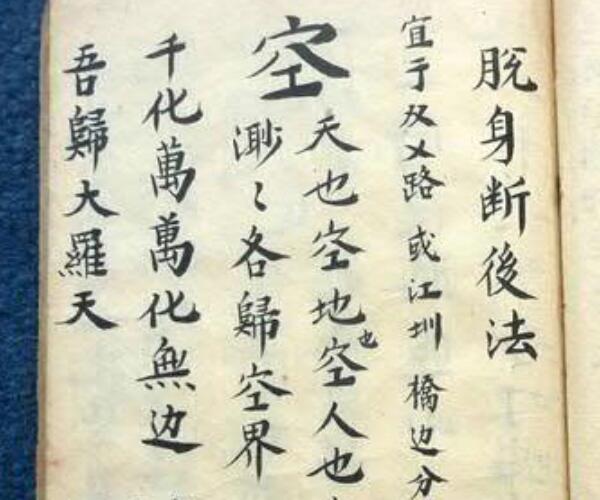 脫身断後法
宜于双乂路 或江圳 橋边分
空 天也空地也空人也
渺〻各歸空界
千化萬萬化無边
吾歸大羅天